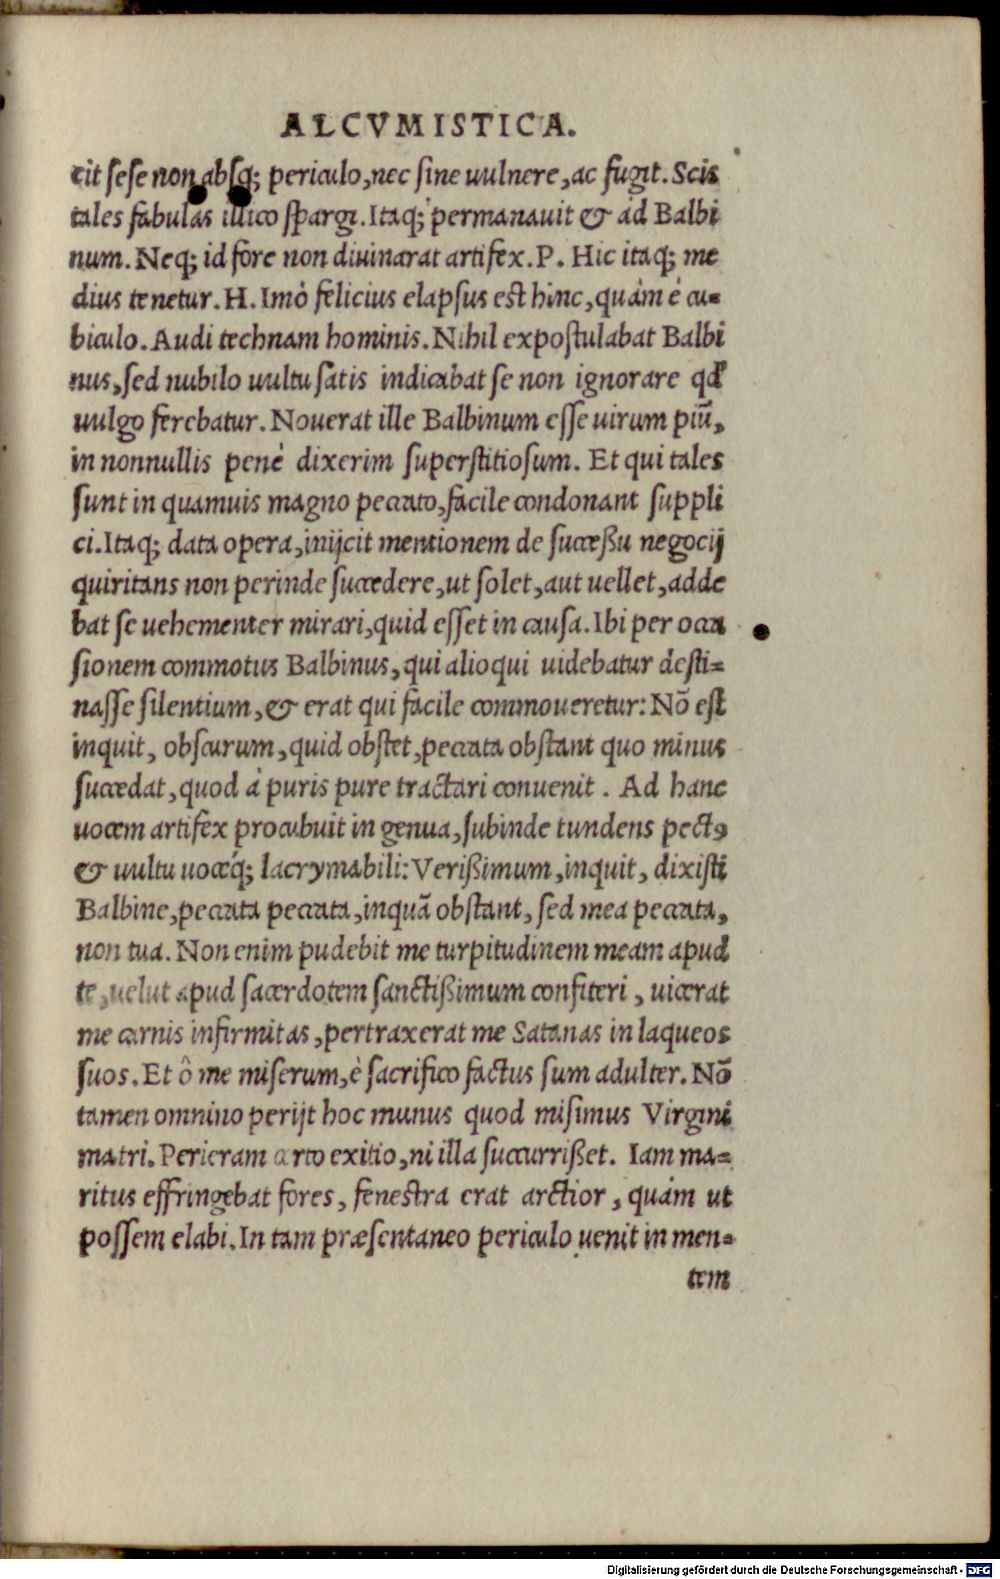 ALCVMISTICA.
cit seſe non abſq; periculo, nec ſine uulnere, ac fugit. Scis
tales fabulas illico ſpargi. Itaq; permanauit & ad Balbi
num. Neq; id fore non diuinarat artifex. P. Hic itaq; me
dius tenetur. H. Imò felicius elapſus eſt hinc, quàm è cu-
biculo. Audi technam hominis. Nihil expoſtulabat Balbi
nus, ſed nubilo uultu ſatis indicabat ſe non ignorare qđ
uulgo ferebatur. Nouerat ille Balbinum eſſe uirum piũ,
in nonnullis penè dixerim ſuperſtitioſum. Et qui tales
ſunt in quamuis magno peccato, facile condonant ſuppli
ci. Itaq; data opera, inijcit mentionem de ſucceßu negocij
quiritans non perinde ſuccedere, ut ſolet, aut uellet, adde
bat ſe uehementer mirari, quid eſſet in cauſa. Ibi per occa
ſionem commotus Balbinus, qui alioqui uidebatur deſti-
naſſe ſilentium, & erat qui facile commoueretur: Nõ eſt
inquit, obſcurum, quid obſtet, peccata obſtant quo minus
ſuccedat, quod à puris pure tractari conuenit. Ad hanc
uocem artifex procubuit in genua, ſubinde tundens pectꝰ
& uultu uoceq́; lacrymabili: Verißimum, inquit, dixiſti
Balbine, peccata peccata, inquã obſtant, ſed mea peccata,
non tua. Non enim pudebit me turpitudinem meam apud
te, uelut apud ſacerdotem ſanctißimum confiteri, uicerat
me carnis infirmitas, pertraxerat me Satanas in laqueos
ſuos. Et ô me miſerum, è ſacrifico factus ſum adulter. Nõ
tamen omnino perijt hoc munus quod miſimus Virgini
matri. Perieram certo exitio, ni illa ſuccurrißet. Iam ma-
ritus effringebat fores, feneſtra erat arctior, quàm ut
poſſem elabi. In tam præſentaneo periculo uenit in men-
tem
Digitalisierung gefördert durch die Deutsche Forschungsgemeinschaft - DFG